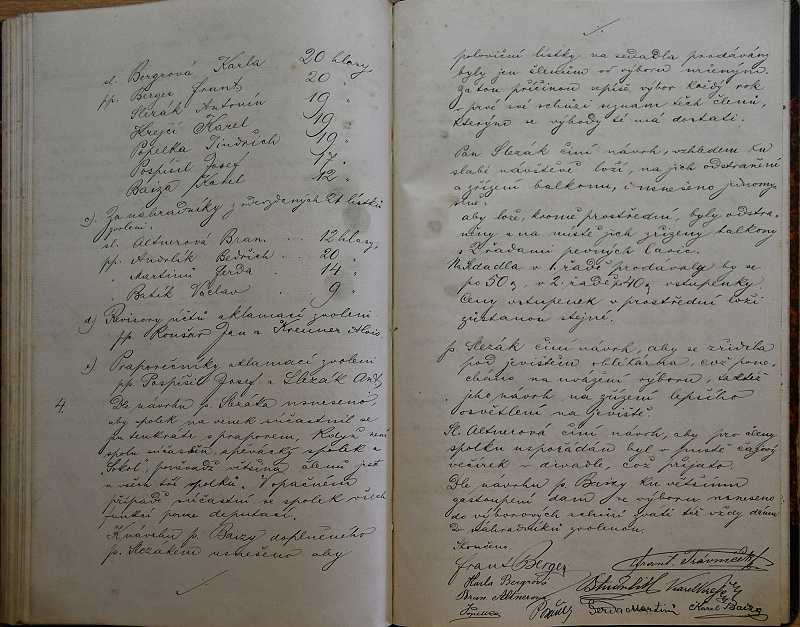 sl. Bergrová Karla 20 hlasy
pp. Berger Frant. 20 "
Slezák Antonín 19 "
Krejčí Karel 19 "
Popelka Jindřich 19 "
Pospíšil Josef 17 "
Baiza Karel 12 "
c) Za náhradníky z odevzdaných 21 lístků
zvoleni:
sl. Altnerová Bran. ... 12 hlasy
pp. Andrlík Bedřich .. 20 "
" Martinů Gerda .. 14 "
" Batík Václav .. 9 "
d) Revisory účtů aklamací zvoleni
pp. Roušar Jan a Kreuner Alois.
e) Praporečníky aklamací zvoleni
pp. Pospíšil Josef a Slezák Ant.
4. Dle návrhu p. Slezáka usneseno,
aby spolek na venek súčastnil se
jen tenkráte s praporem, když není
spolu súčastněn, spěvácký spolek a
Sokol, poněvadž většina členů jest
u všech tří spolků. V opačném
případě súčastní se spolek všech
funkcí pouze deputací.
K návrhu p. Baizy doplněného
p. Slezákem usneseno aby
poloviční lístky na sedadla prodávány
byly jen členům od výboru určeným.
Za tou příčinou sepíše výbor každý rok
v prvé své schůzi seznam těch členů,
kterým se výhody té má dostati.
Pan Slezák činí návrh, vzhledem ku
slabé návštěvě loží, na jich odstranění
a zřízení balkonu, i usneseno jednomy-
slně:
aby lože, kromě prostřední, byly odstra-
něny a na místě jich zřízeny balkony
s 2 řadami pevných lavic.
Na sedadla v 1. řadě prodávaly by se
po 50 h, v 2. řadě po 40 h vstupenky.
Ceny vstupenek v prostřední loži
zůstanou stejné.
p. Slezák činí návrh, aby se zřídila
pod jevištěm oblékárna, což pone-
cháno na uvážení výboru, taktéž
jeho návrh na zřízení lepšího
osvětlení na jeviště.
Sl. Altnerová činí návrh, aby pro členy
spolku uspořádán byl v pustě čajový
večírek v divadle, což přijato.
Dle návrhu p. Baizy ku většímu
zastoupení dam ve výboru usneseno
do výborových schůzí zváti též vždy dámu
za náhradníka zvolenou.
Skončeno.
Frant Berger Frant. Trávníček
Karla Bergrová Karel Krejčí
Bran Altnerova
Popelka Gerda Martinů Karel Baiza